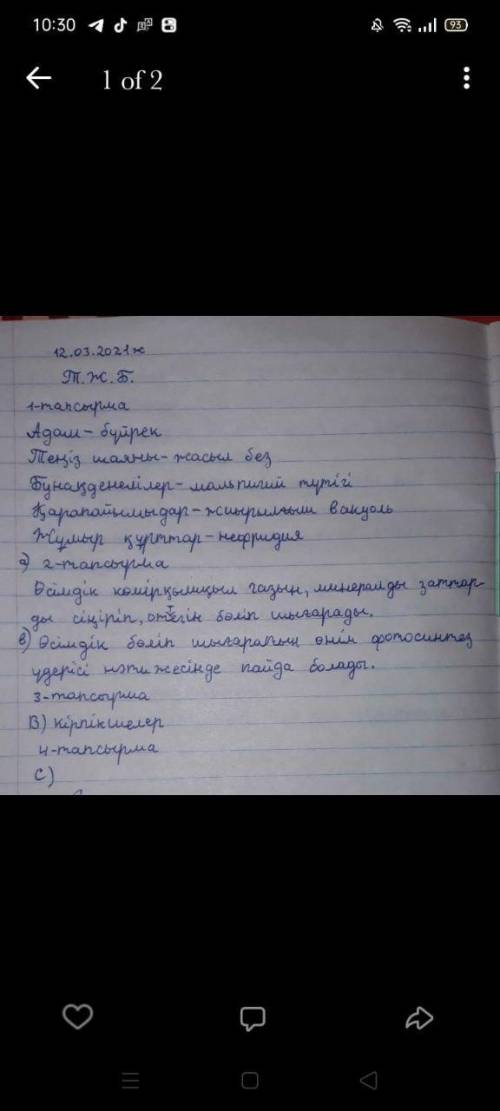 10:30
93
1 of 2
12.03.2021ж
Т.Ж.Б.
1-тапсырма
Адам - бүйрек
Теңіз шаяны - жасыл без
Бунақденелілер - мальпигий түтігі
Қарапайымдар - жиырылғыш вакуоль
Жұмыр құрттар - нефридия
а) 2-тапсырма
Өсімдік көмірқышқыл газын, минералды заттар-
ды сіңіріп, оттегін бөліп шығарады.
в) Өсімдік бөліп шығаратын өнім фотосинтез
үдерісі нәтижесінде пайда болады.
3-тапсырма
В) кірпікшелер
4-тапсырма
С)